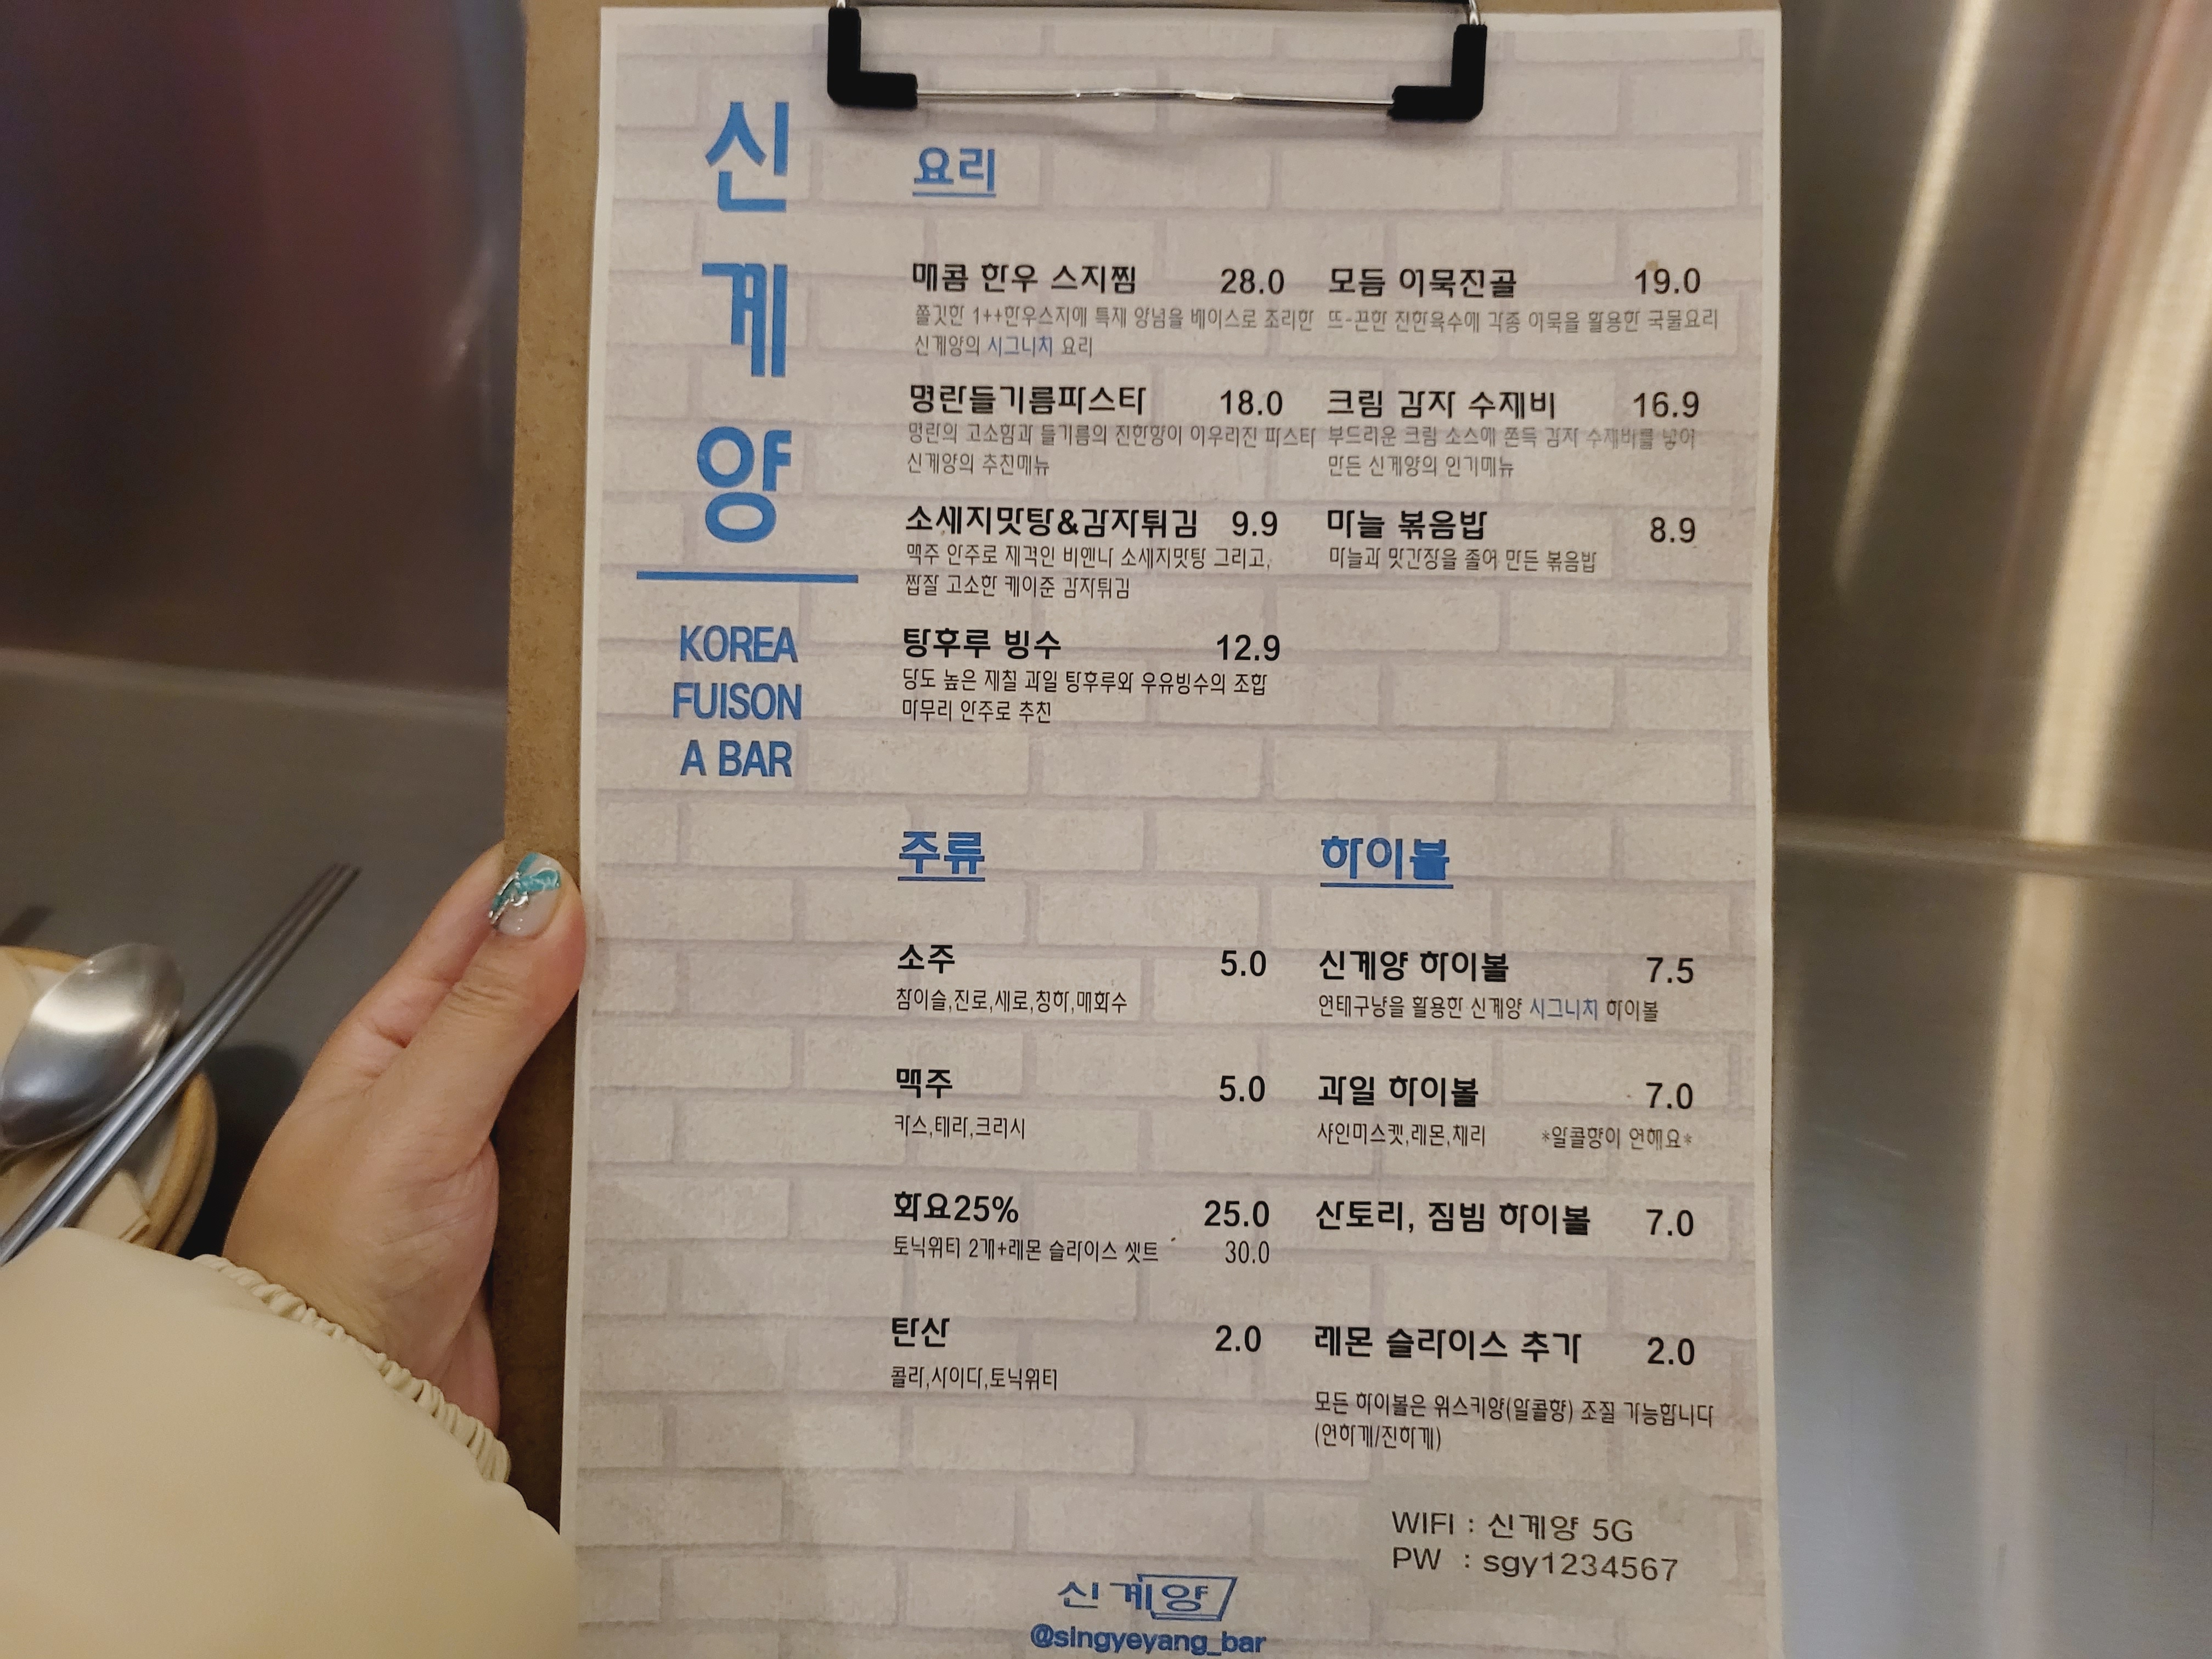 신
계
양
KOREA
FUISON
A BAR
요리
매콤 한우 스지찜 28.0
쫄깃한 1++한우스지에 특제 양념을 베이스로 조리한
신계양의 시그니처 요리
명란들기름파스타 18.0
명란의 고소함과 들기름의 진한향이 어우러진 파스타
신계양의 추천메뉴
소세지맛탕&감자튀김 9.9
맥주 안주로 제격인 비엔나 소세지맛탕 그리고,
짭잘 고소한 케이준 감자튀김
탕후루 빙수 12.9
당도 높은 제철 과일 탕후루와 우유빙수의 조합
마무리 안주로 추천
모듬 어묵전골 19.0
뜨-끈한 진한육수에 각종 어묵을 활용한 국물요리
크림 감자 수제비 16.9
부드러운 크림 소스에 쫀득 감자 수제비를 넣어
만든 신계양의 인기메뉴
마늘 볶음밥 8.9
마늘과 맛간장을 졸여 만든 볶음밥
주류
소주 5.0
참이슬,진로,새로,청하,매화수
맥주 5.0
카스,테라,크러시
화요25% 25.0
토닉워터 2개+레몬 슬라이스 셋트 30.0
탄산 2.0
콜라,사이다,토닉워터
하이볼
신계양 하이볼 7.5
연태구냥을 활용한 신계양 시그니처 하이볼
과일 하이볼 7.0
샤인머스켓,레몬,체리 *알콜향이 연해요*
산토리, 짐빔 하이볼 7.0
레몬 슬라이스 추가 2.0
모든 하이볼은 위스키양(알콜향) 조절 가능합니다
(연하게/진하게)
WIFI : 신계양 5G
PW : sgy1234567
신계양
@singyeyang_bar